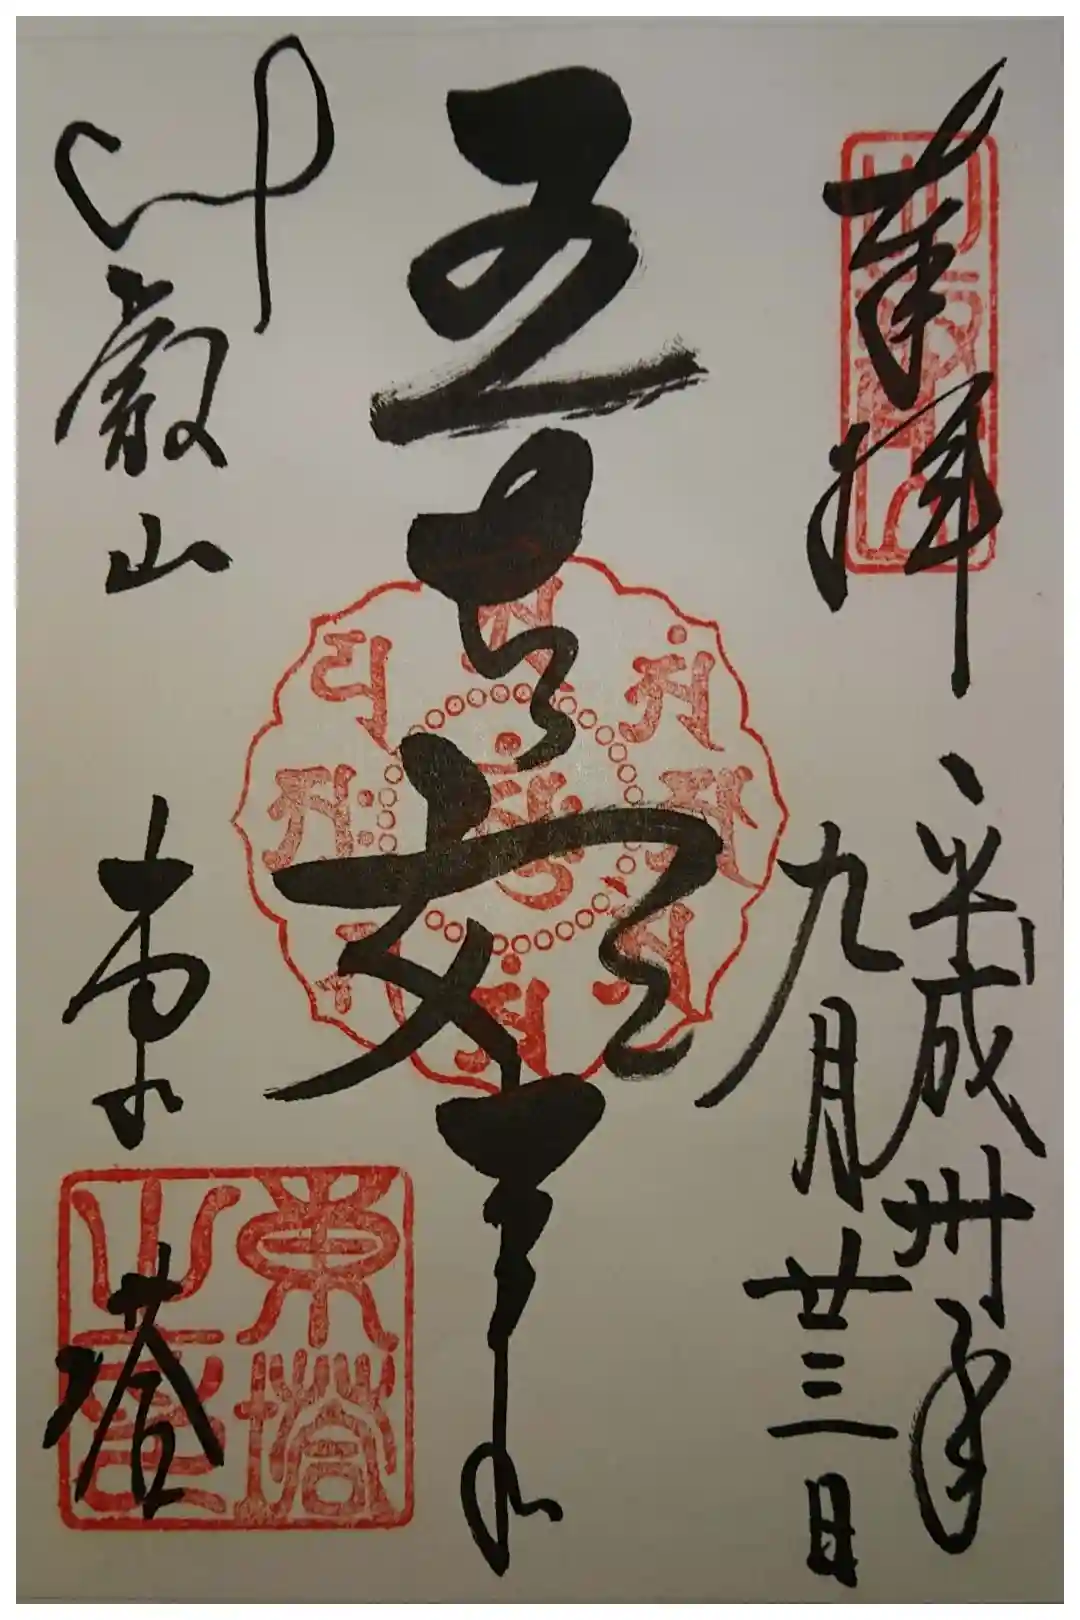 奉拝
平成卅年
九月廿三日
五智如来
比叡山 東塔
東塔之印